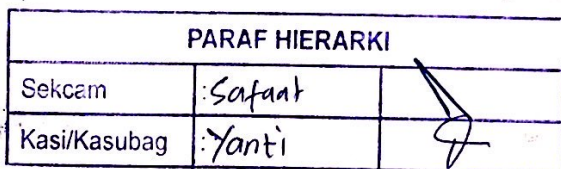 PARAF HIERARKI
Sekcam :Safaat
Kasi/Kasubag :Yanti